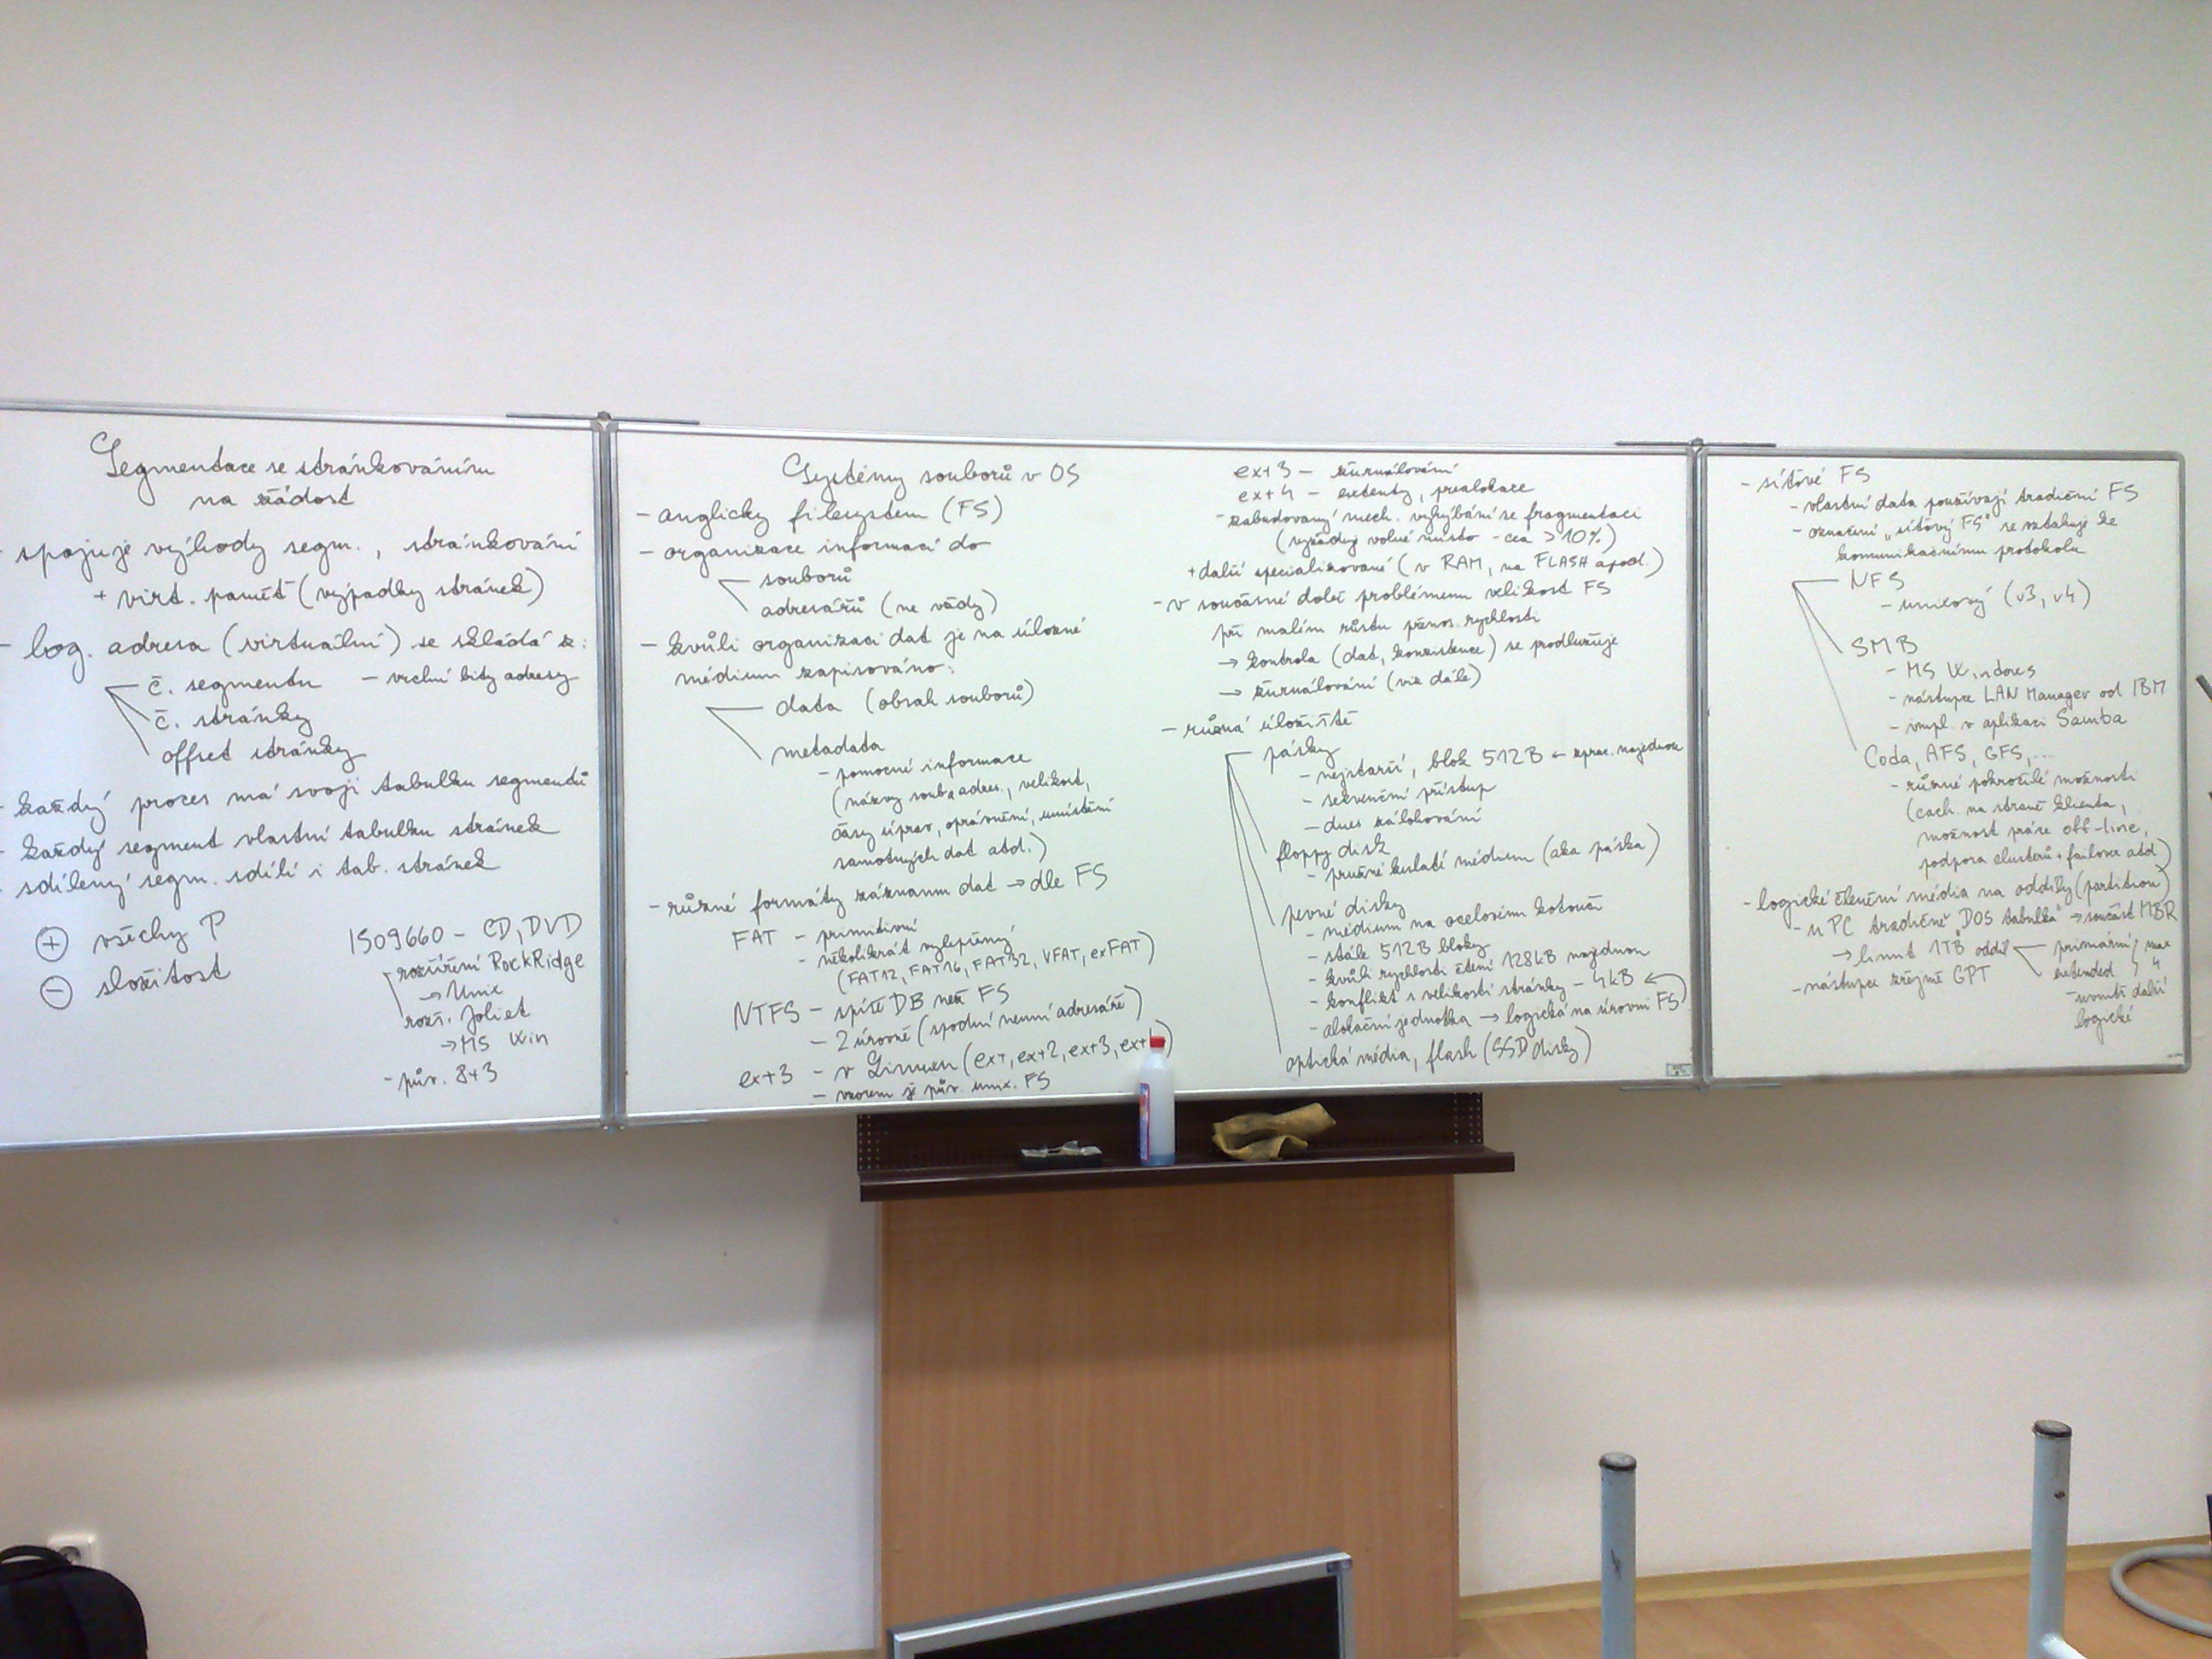 Segmentace se stránkováním
na žádost
- spojuje výhody segm., stránkování
+ virt. paměť (výpadky stránek)
- log. adresa (virtuální) se skládá z:
č. segmentu - vrchní bity adresy
č. stránky
offset stránky
- každý proces má svoji tabulku segmentů
- každý segment vlastní tabulku stránek
- sdílený segm. sdílí i tab. stránek
+ všechny P
- složitost
ISO9660 - CD, DVD
rozšíření RockRidge
→ Unix
rozš. Joliet
→ MS Win
- pův. 8+3
Systémy souborů v OS
- anglicky filesystem (FS)
- organizace informací do
souborů
adresářů (ne vždy)
- kvůli organizaci dat je na úložné
médium zapisováno:
data (obsah souborů)
metadata
- pomocné informace
(názvy soub, adres., velikost,
časy úprav, oprávnění, umístění
samotných dat atd.)
- různé formáty záznamu dat → dle FS
FAT - primitivní
- několikrát vylepšený
(FAT12, FAT16, FAT32, VFAT, exFAT)
NTFS - spíše DB než FS
- 2 úrovně (spodní neumí adresáře)
ext3 - v Linuxu (ext, ext2, ext3, ext )
- vzorem je pův. unix. FS
ext3 - žurnálování
ext4 - extenty, prealokace
- zabudovaný mech. vyhýbání se fragmentaci
(vyžaduje volné místo - cca > 10%)
+ další specializované (v RAM, na FLASH apod.)
- v současné době problémem velikost FS
při malém růstu přenos. rychlosti
→ kontrola (dat, konzistence) se prodlužuje
→ žurnálování (viz dále)
- různá úložiště
pásky
- nejstarší, blok 512B ← zprac. najednou
- sekvenční přístup
- dnes zálohování
floppy disk
- pružné kulaté médium (aka páska)
pevné disky
- médium na ocelovém kotouči
- stále 512B bloky
- kvůli rychlosti čtení 128kB najednou
- konflikt s velikostí stránky - 4kB
- alokační jednotka → logická na úrovni FS
optická média, flash (SSD disky)
- síťové FS
- vlastní data používají tradiční FS
- označení „síťový FS" se vztahuje ke
komunikačnímu protokolu
NFS
- unixový (v3, v4)
SMB
- MS Windows
- nástupce LAN Manager od IBM
- impl. v aplikaci Samba
Coda, AFS, GFS, ...
- různé pokročilé možnosti
(cach. na straně klienta,
možnost práce off-line,
podpora clusterů + failover atd)
- logické členění média na oddíly (partition)
- u PC tradičně "DOS tabulka" → součást MBR
→ limit 1TB oddíl primární } max
extended } 4
- uvnitř další
logické
- nástupce zřejmě GPT